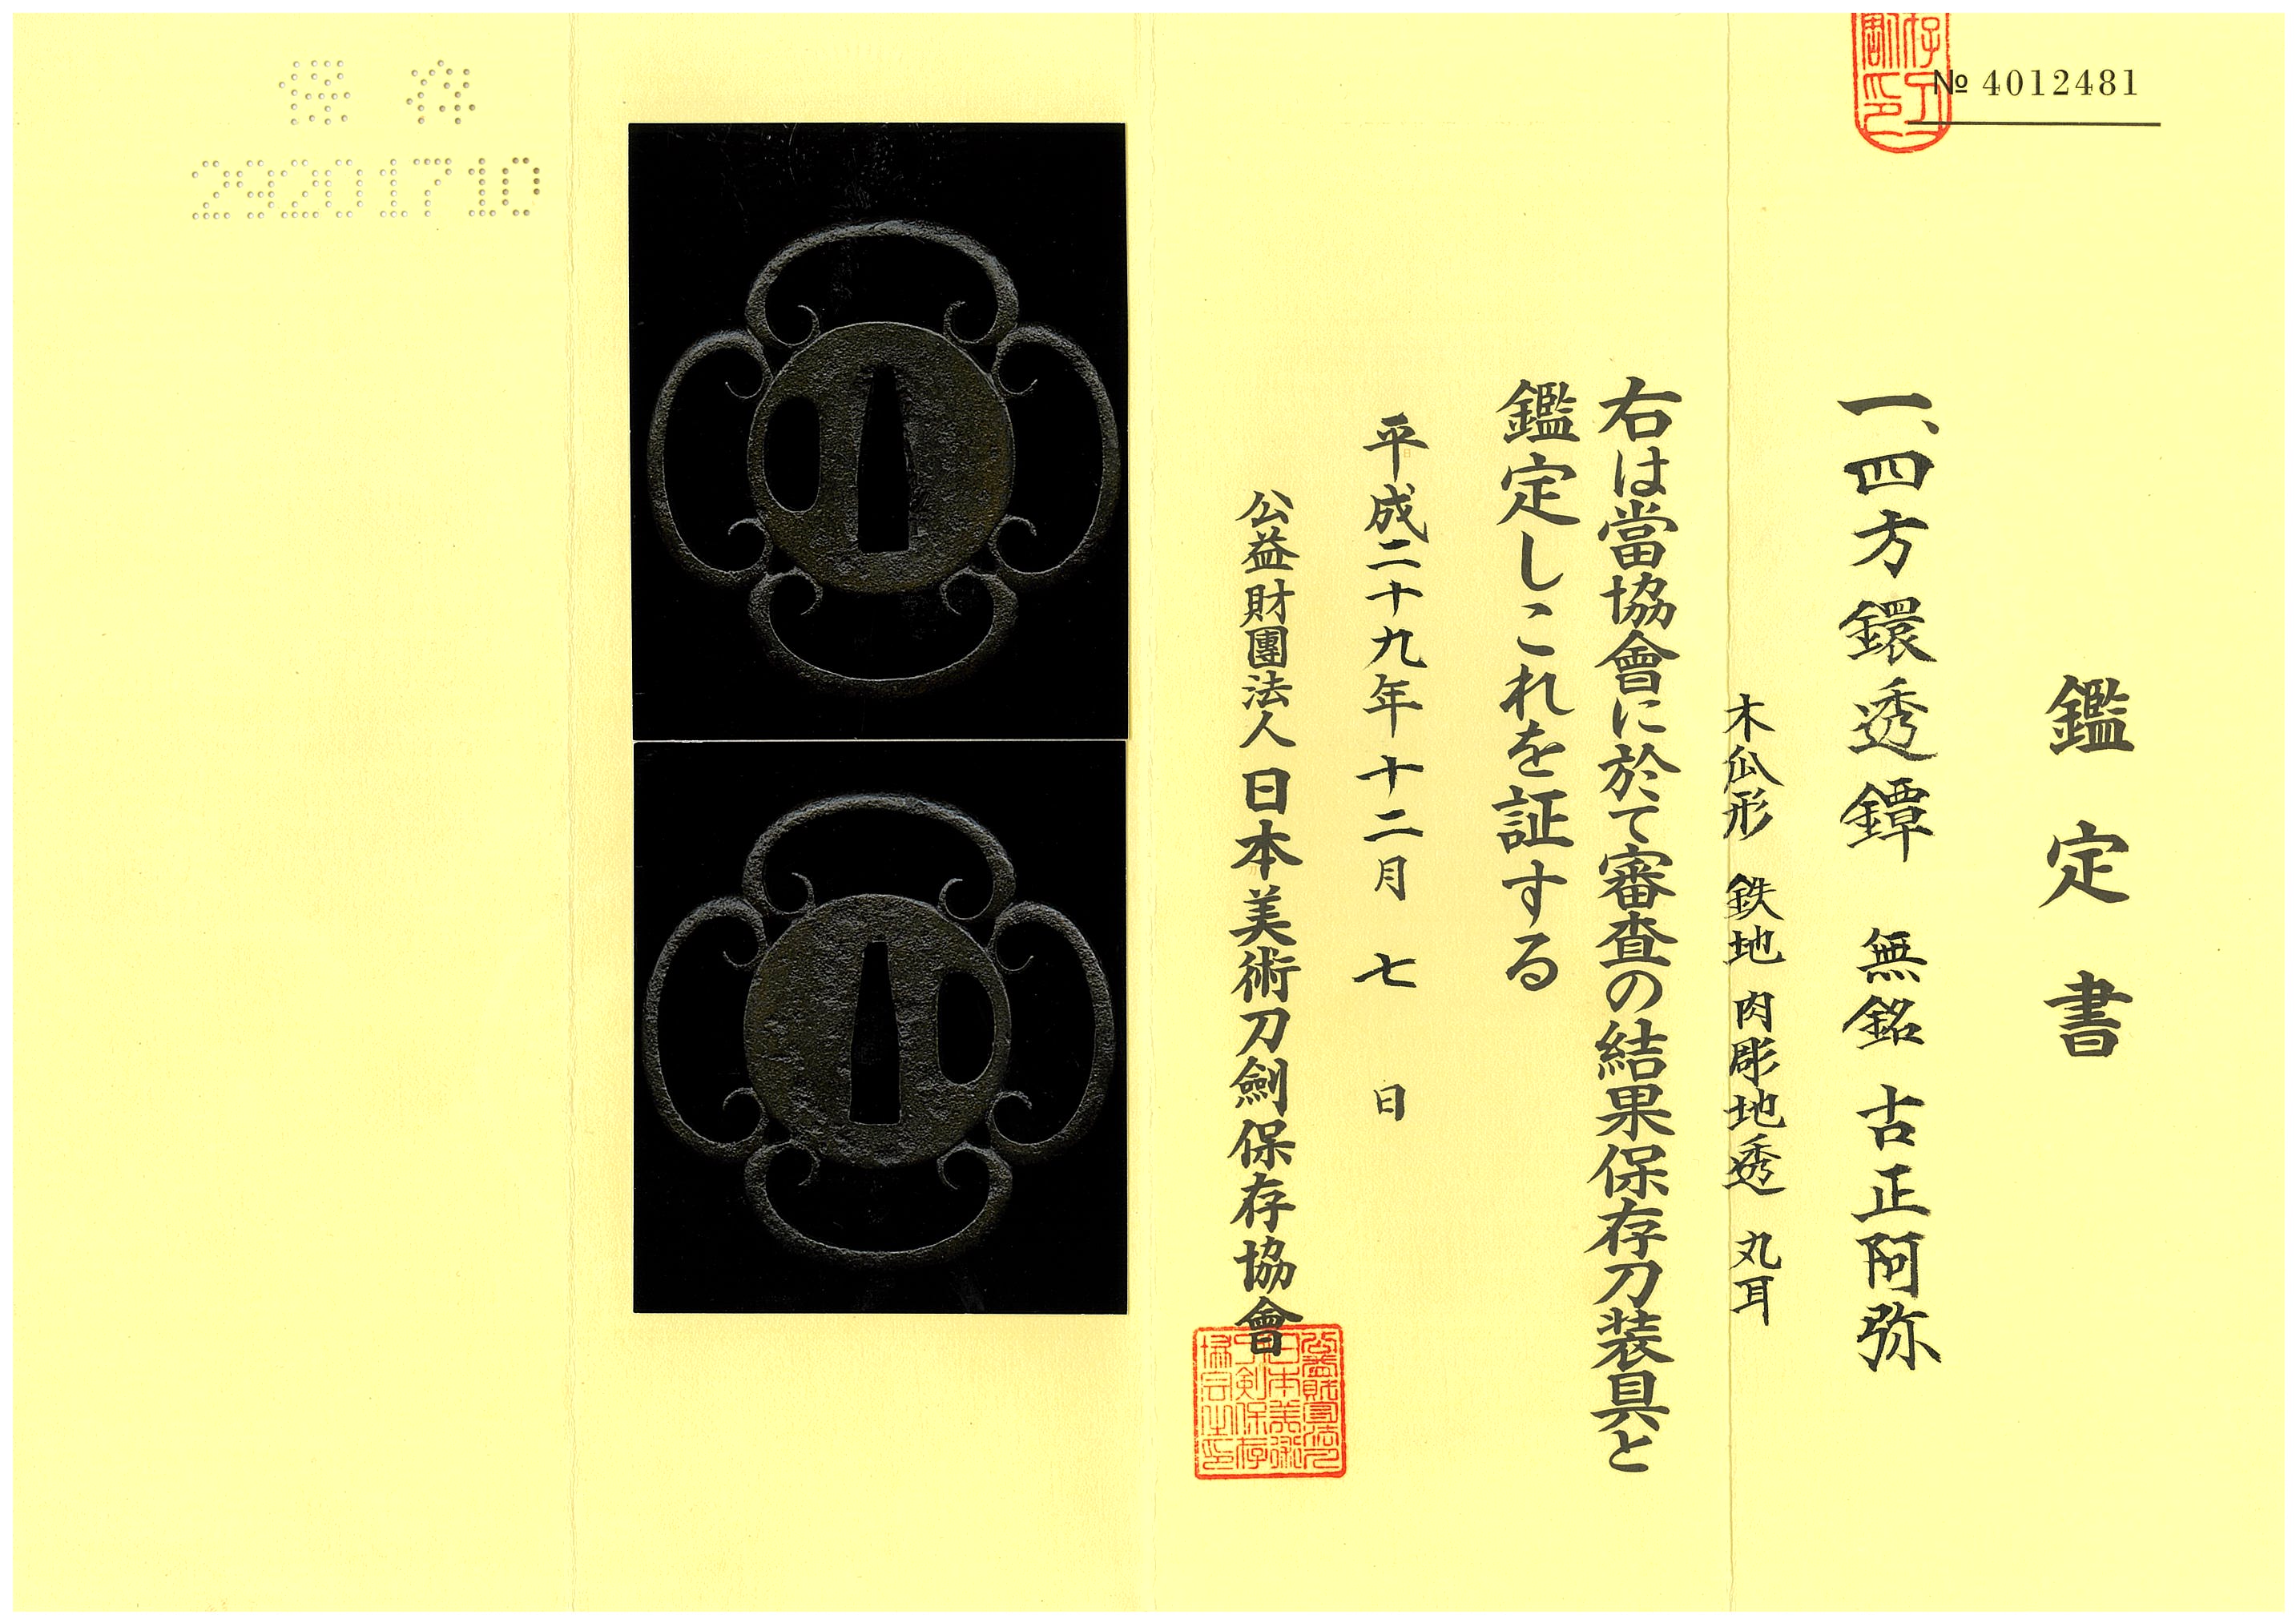 № 4012481
鑑定書
一、四方鐶透鐔 無銘 古正阿弥
木瓜形 鉄地 肉彫地透 丸耳
右は當協會に於て審査の結果保存刀装具と
鑑定しこれを証する
平成二十九年十二月 七 日
公益財團法人 日本美術刀劍保存協會
保存
29201710